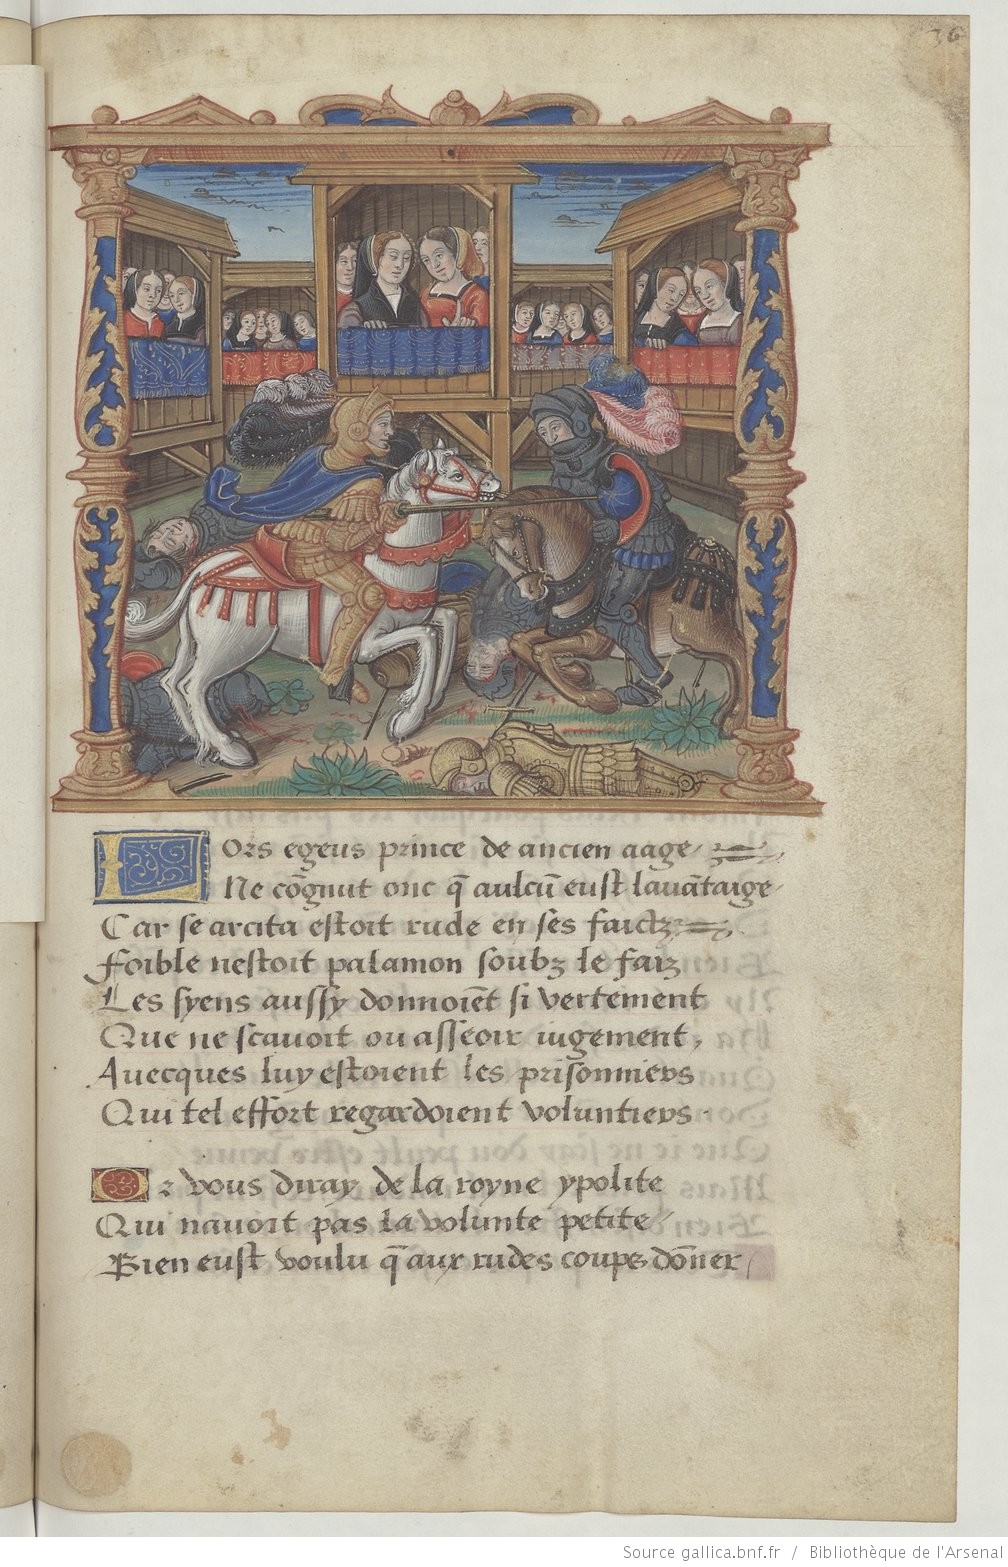 36
Lors egeus prince de ancien aage
Ne cōgnut onc q̄ aulcū eust lauātaige
Car se arcita estoit rude en ses faictz
Foible nestoit palamon soubz le faiz
Les syens aussy donnoiēt si vertement
Que ne scauoit ou asseoir iugement,
Auecques luy estoient les prisonniers
Qui tel effort regardoient voluntiers.
Or vous diray de la royne ypolite
Qui nauoit pas la volunte petite
Bien eust voulu q̄ aux rudes coups dōner
Source gallica.bnf.fr / Bibliothèque de l'Arsenal